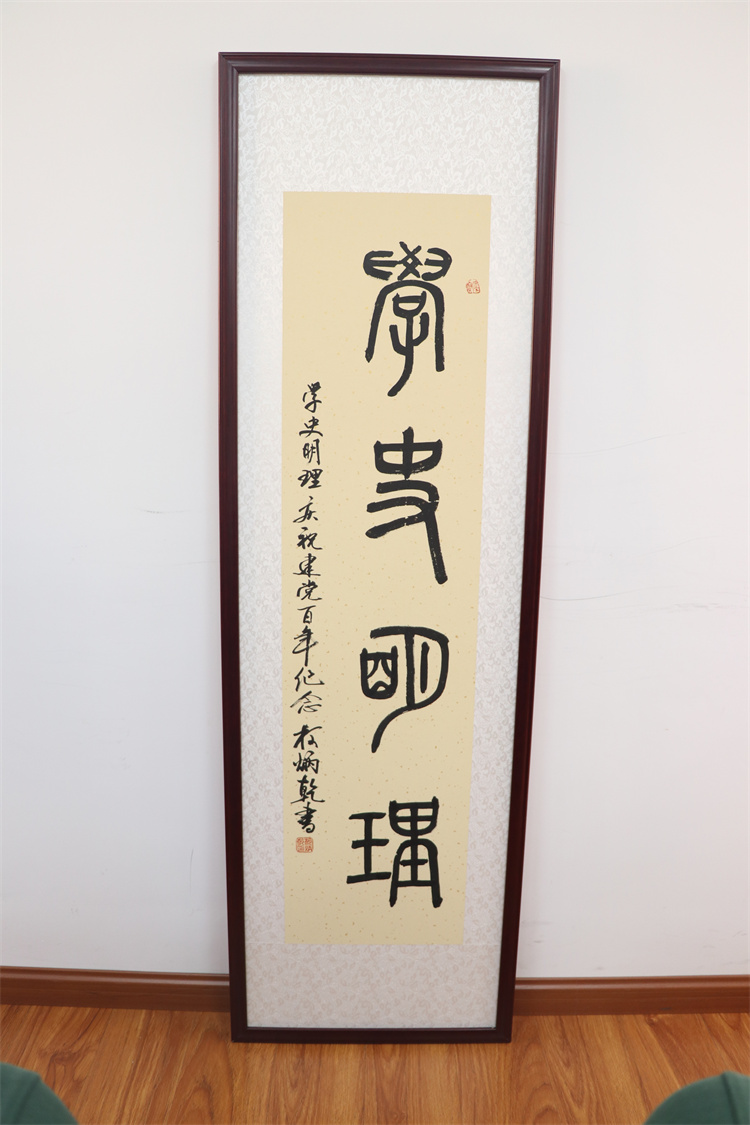 學史明理
学史明理 庆祝建党百年纪念 炳乾书